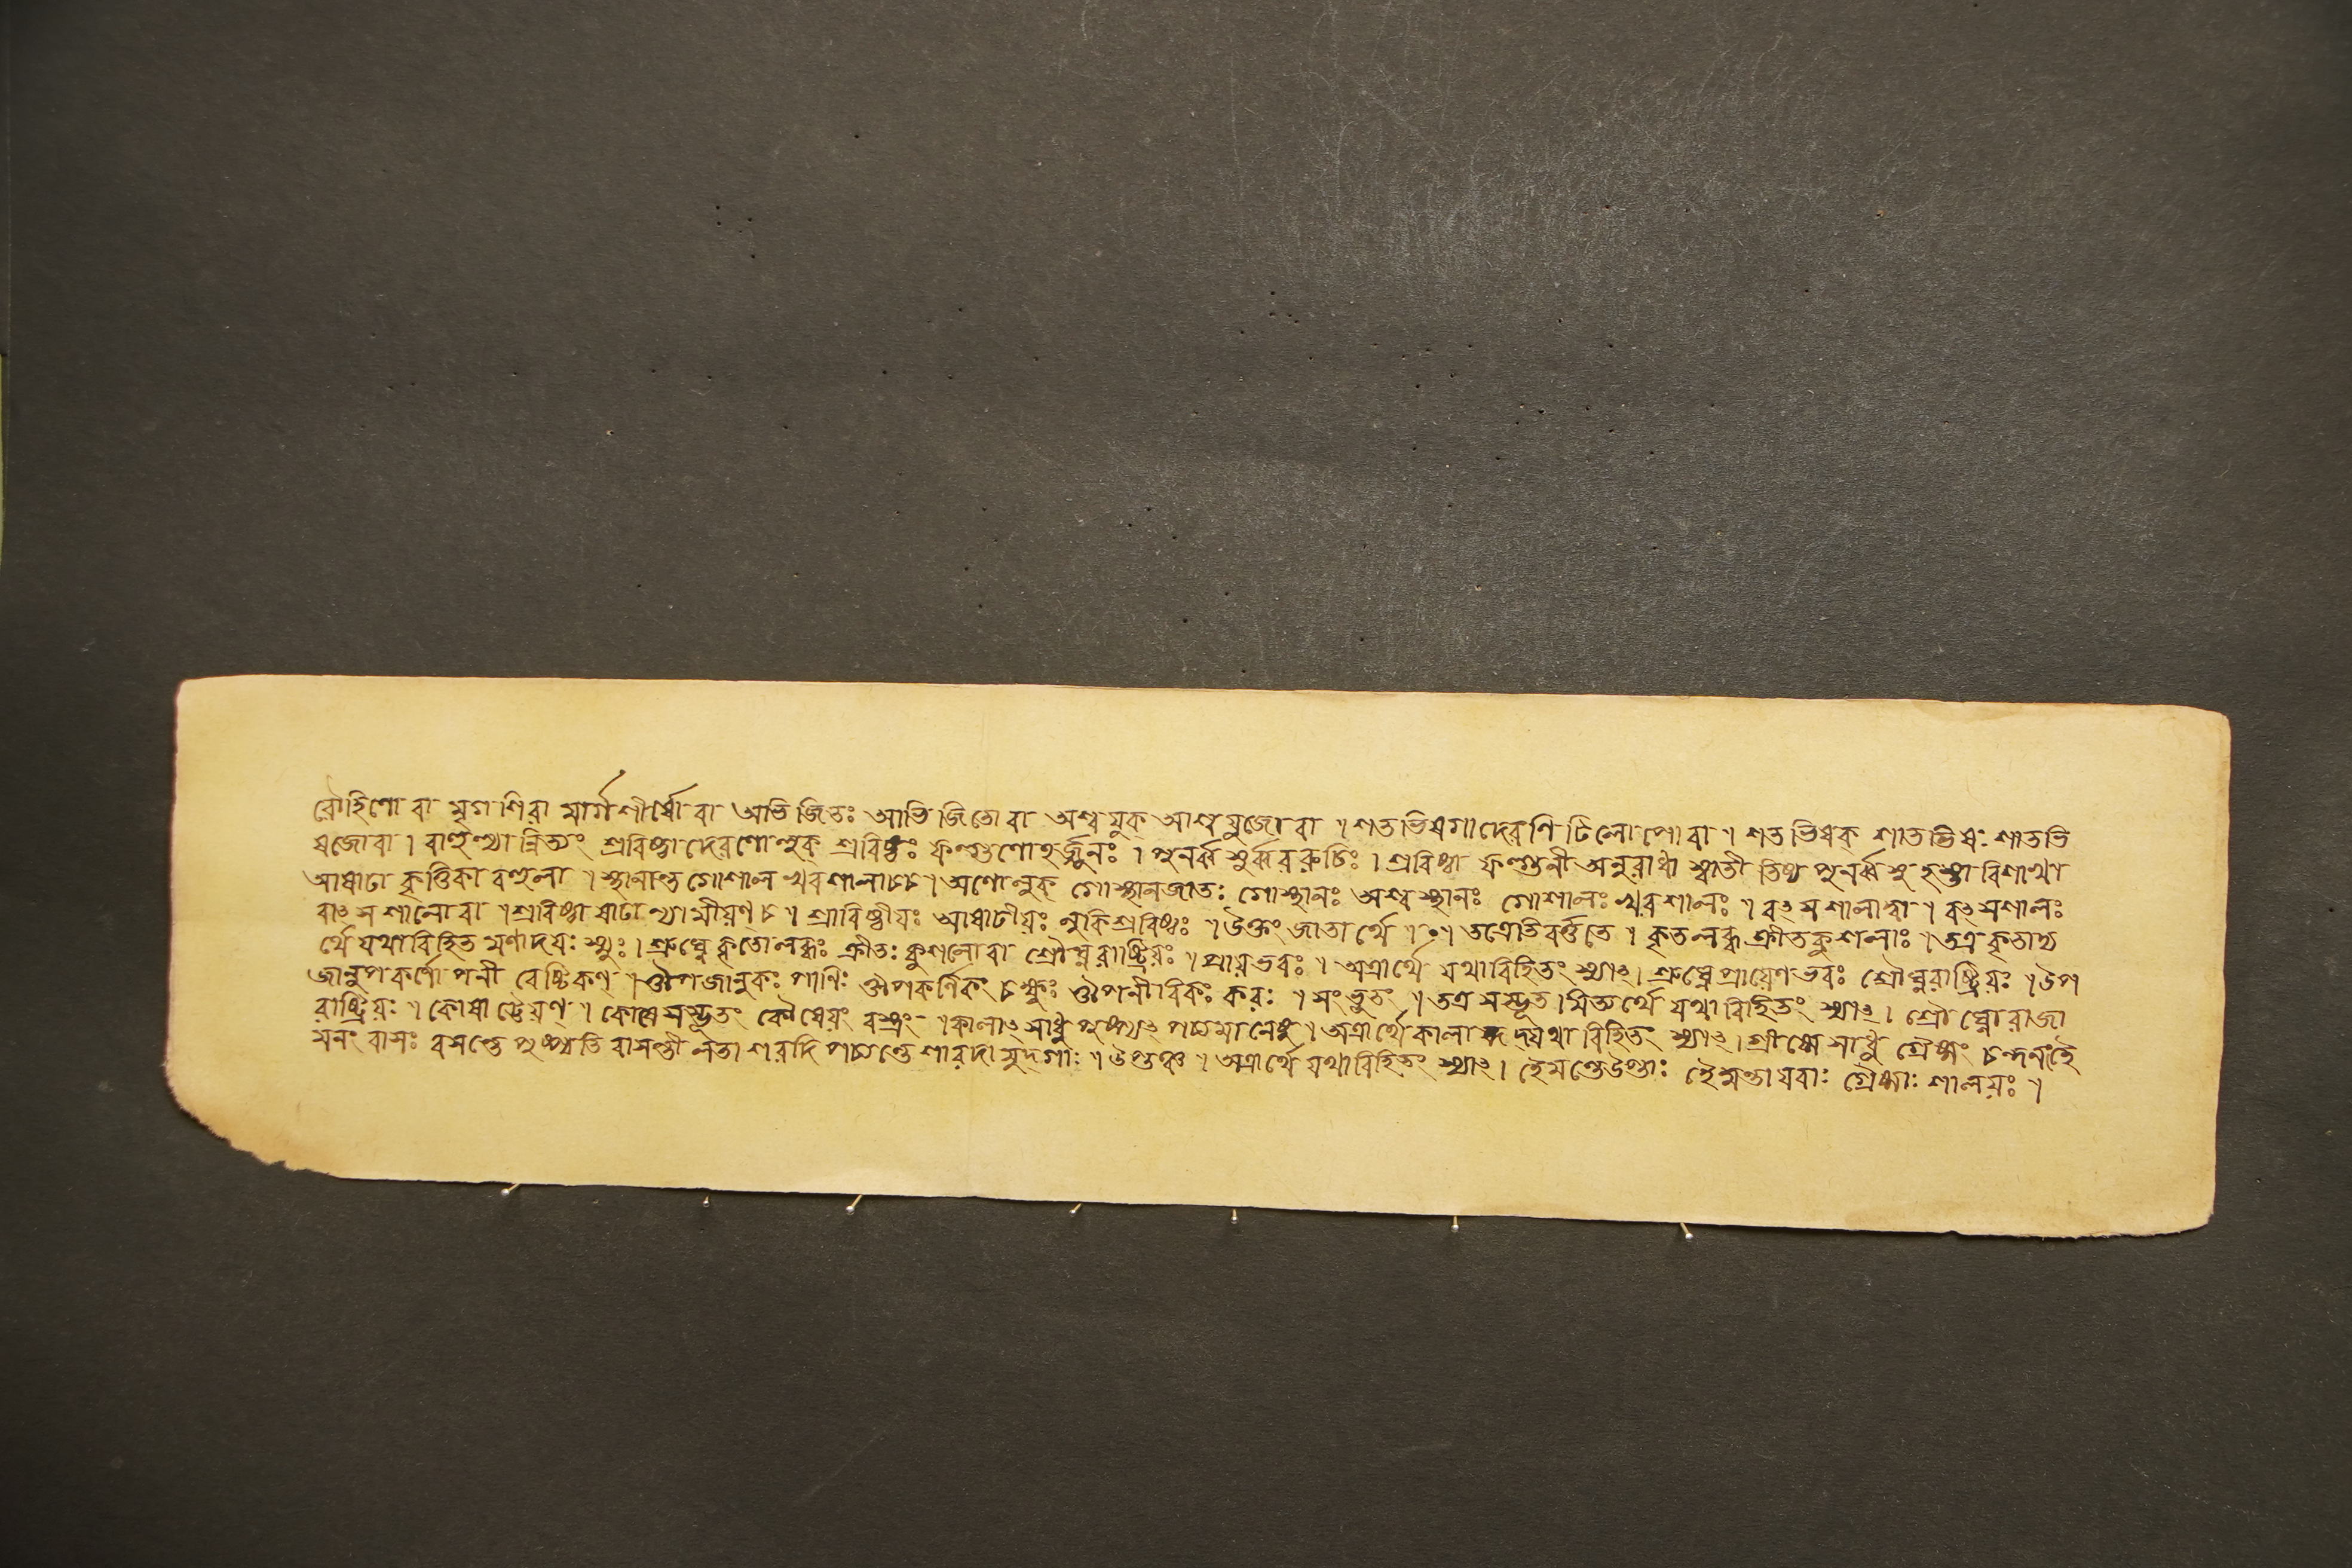 রৌহিণো বা মৃগশিরা মার্গশীর্ষো বা অভিজিতঃ আভিজিতো বা অশ্বযুক্ আশ্বযুজো বা । শতভিষগাদেরণি টিলোপো বা । শতভিষক্ শাতভিষঃ শাতভি
ষজো বা । বাহুল্যান্নিত্যং শ্রবিষ্ঠাদেরণো লুক্ শ্রবিষ্ঠঃ ফল্গুণোঽর্জ্জুনঃ । পুনর্ব্বসুর্ব্বররুচিঃ । শ্রবিষ্ঠা ফল্গুনী অনুরাধা স্বাতী তিষ্য পুনর্ব্বসু হস্তা বিশাখা
আষাঢা কৃত্তিকা বহুলা । স্থানান্ত গোশাল খরশালাচ্চ । অণো লুক্ গোস্থানজাতঃ গোস্থানঃ অশ্বস্থানঃ গোশালঃ খরশালঃ । বৎসশালাদ্বা । বৎসশালঃ
বাৎসশালো বা । শ্রবিষ্ঠাষাঢাভ্যামীয়ণ্ চ । শ্রাবিষ্ঠীয়ঃ আষাঢীয়ঃ লুকি শ্রবিষ্ঠঃ । উক্তং জাতার্থে । ॰ । তত্রেতি বর্ত্ততে । কৃতলব্ধক্রীতকুশলাঃ । তত্র কৃতাদ্য
র্থে যথাবিহিতমণাদয়ঃ স্যুঃ । শ্রুঘ্নে কৃতো লব্ধঃ ক্রীতঃ কুশলো বা শ্রৌঘ্নরাষ্ট্রিয়ঃ । প্রায়ভবঃ । অত্রার্থে যথাবিহিতং স্যাৎ । শ্রুঘ্নে প্রায়েণ ভবঃ শ্রৌঘ্নরাষ্ট্রিয়ঃ । উপ
জানুপকর্ণোপনীবেষ্টিকণ্ । ঔপজানুকঃ পাণিঃ ঔপকর্ণিকং চক্ষুঃ ঔপনীবিকঃ করঃ । সংভূতং । তত্র সম্ভূতমিত্যর্থে যথাবিহিতং স্যাৎ । শ্রৌঘ্নো রাজা
রাষ্ট্রিয়ঃ । কোষাড্ঢেয়ণ্ । কোষে সম্ভূতং কৌষেয়ং বস্ত্রং । কালাৎ সাধু পুষ্প্যৎ পচ্যমানেষু । অত্রার্থে কালাদ্ যথাবিহিতং স্যাৎ । গ্রীষ্মে সাধু গ্রৈষ্মং চন্দনং হৈ
মনং বাসঃ বসন্তে পুষ্প্যতি বাসন্তী লতা শরদি পচ্যন্তে শারদা মুদ্গাঃ । উপ্তঞ্চ । অত্রার্থে যথাবিহিতং স্যাৎ । হেমন্তে উপ্তাঃ হৈমন্তা যবাঃ গ্রৈষ্মাঃ শালয়ঃ ।